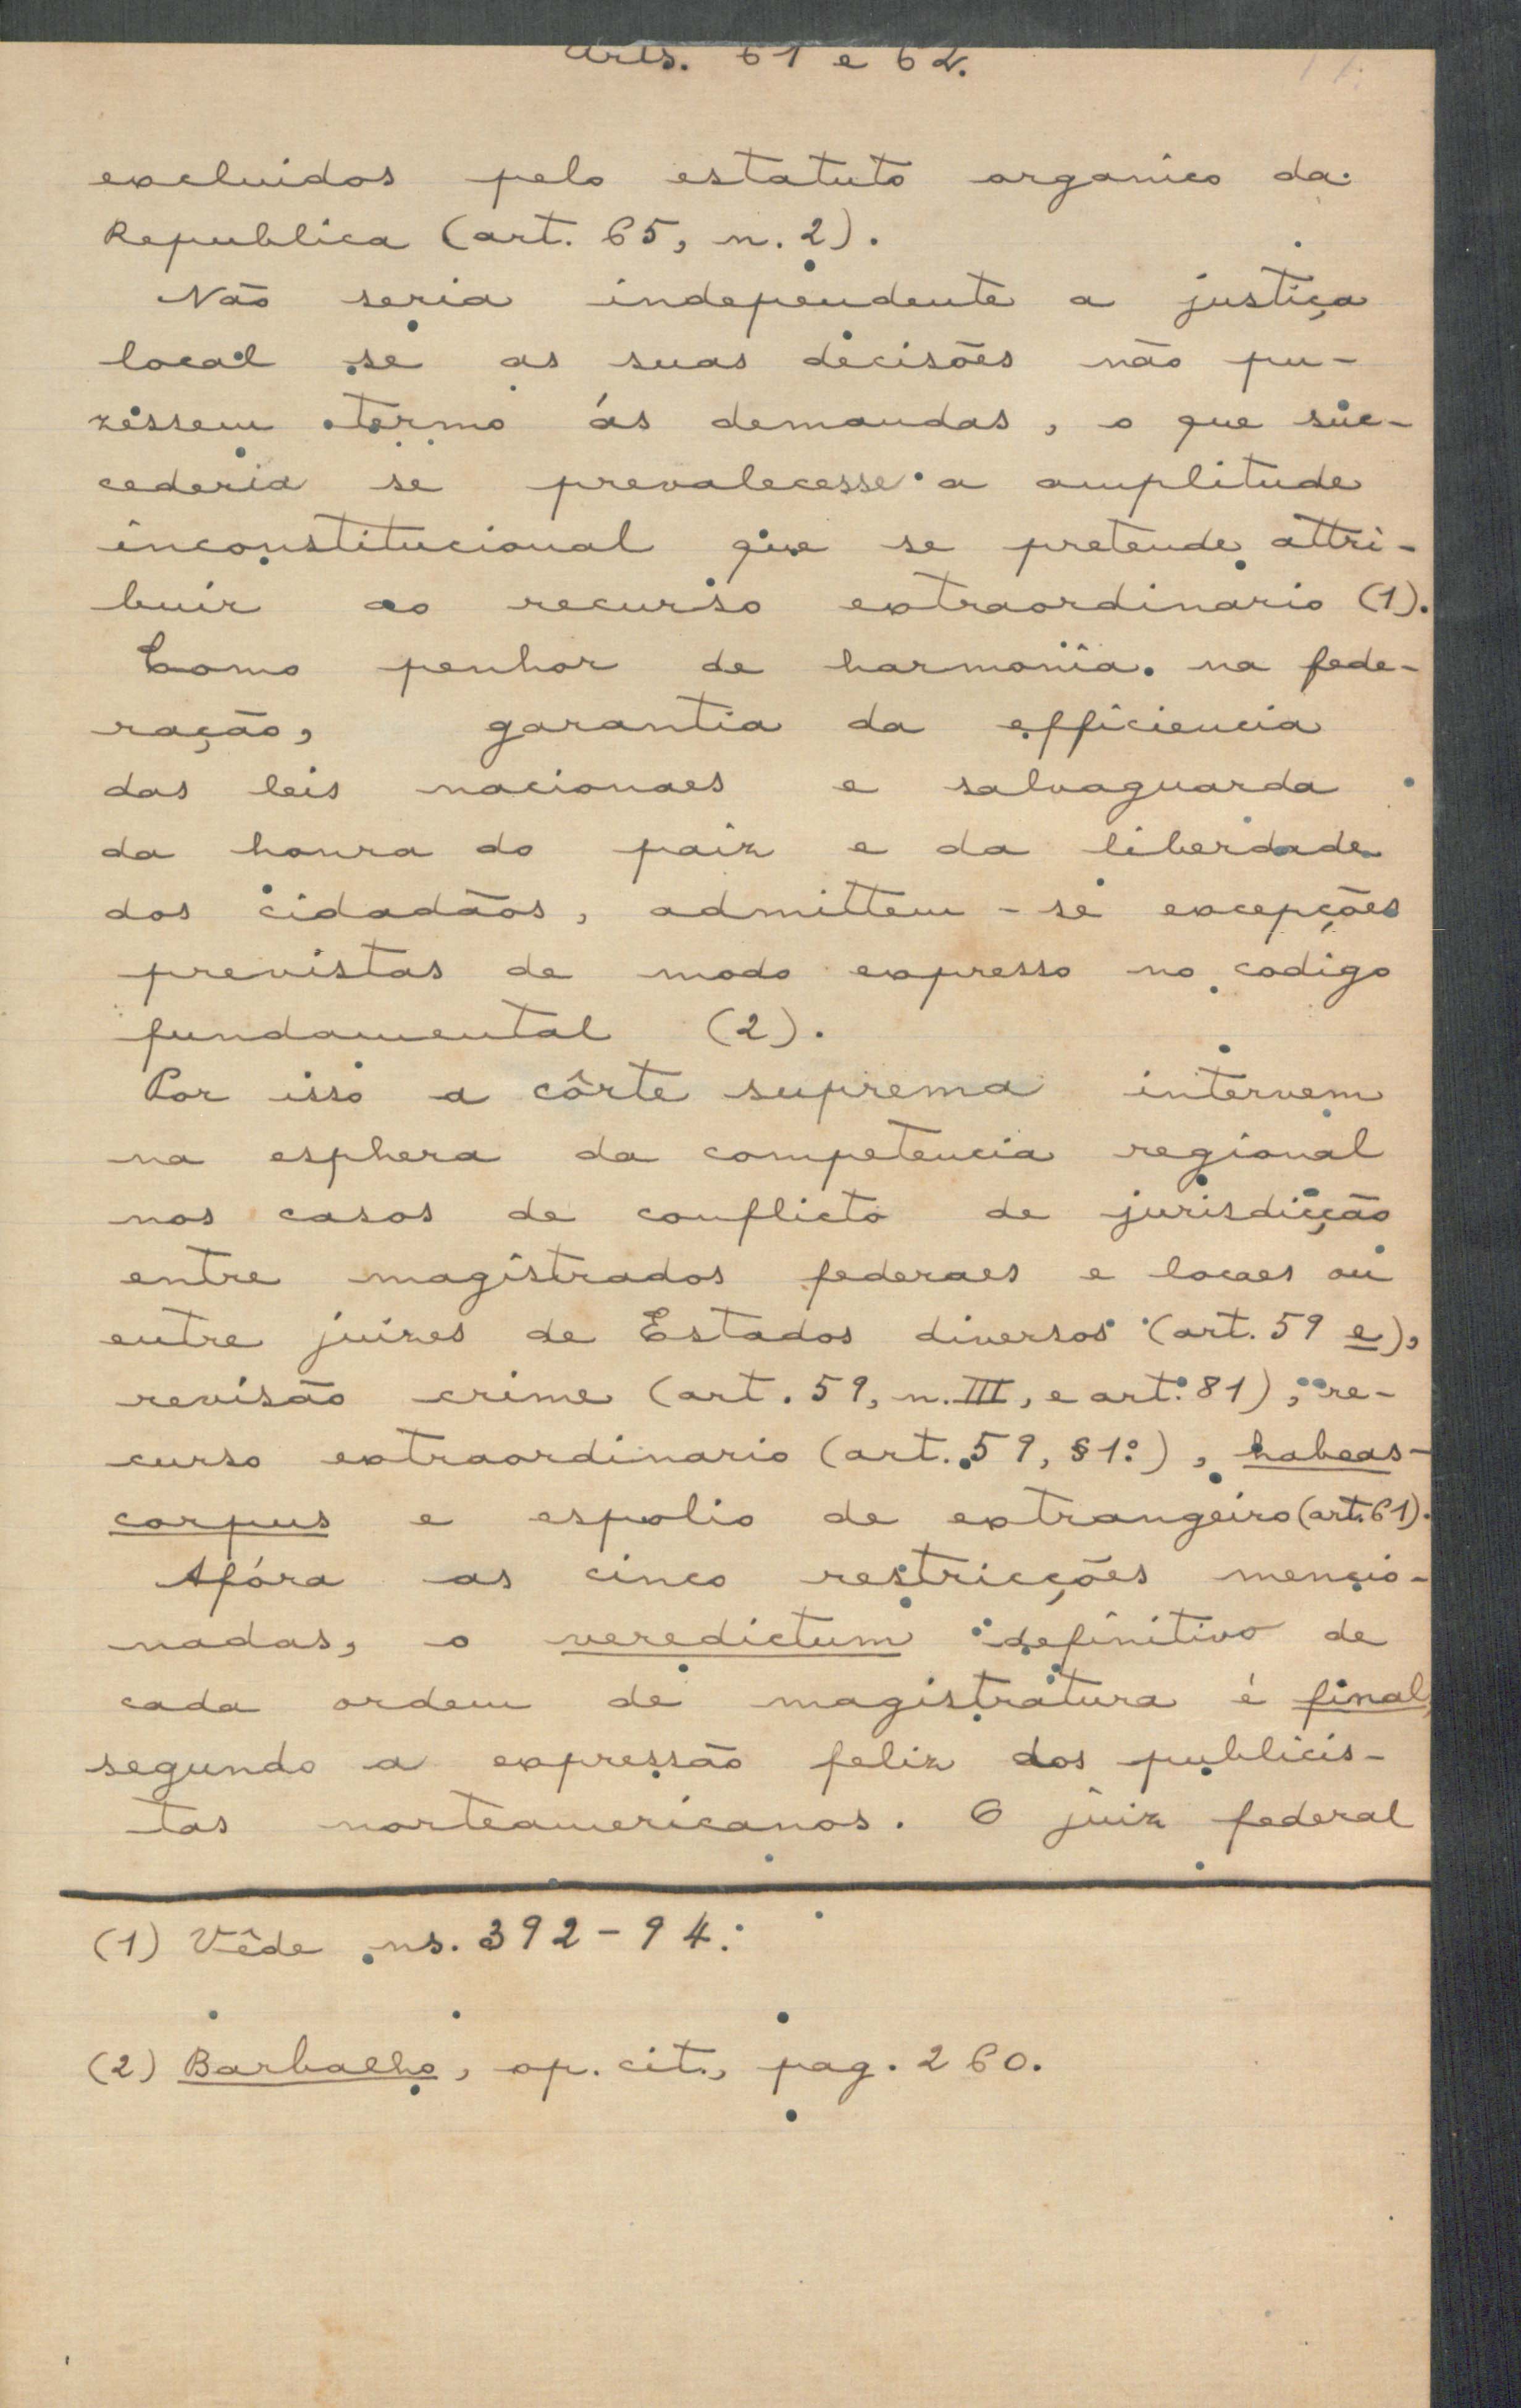 Arts. 61 e 62.
excluidos pelo estatuto organico da
Republica (art. 65, n. 2).
Não seria independente a justiça
local se as suas decisões não pu-
zessem termo ás demandas, o que suc-
cederia se prevalecesse a amplitude
inconstitucional que se pretende attri-
buir ao recurso extraordinario (1).
Como penhor de harmonia na fede-
ração, garantia da efficiencia
das leis nacionaes e salvaguarda
da honra do paiz e da liberdade
dos cidadãos, admittem-se excepções
previstas de modo expresso no codigo
fundamental (2).
Por isso a côrte suprema intervem
na esphera da competencia regional
nos casos de conflicto de jurisdicção
entre magistrados federaes e locaes ou
entre juizes de Estados diversos (art. 59 e),
revisão crime (art. 59, n. III, e art. 81), re-
curso extraordinario (art. 59, §1º), habeas-
corpus e espolio de extrangeiro (art. 61).
Afóra as cinco restricções mencio-
nadas, o veredictum definitivo de
cada ordem de magistratura é final,
segundo a expressão feliz dos publicis-
tas norteamericanos. O juiz federal
(1) Vêde ns. 392-94.
(2) Barbalho, op. cit., pag. 260.